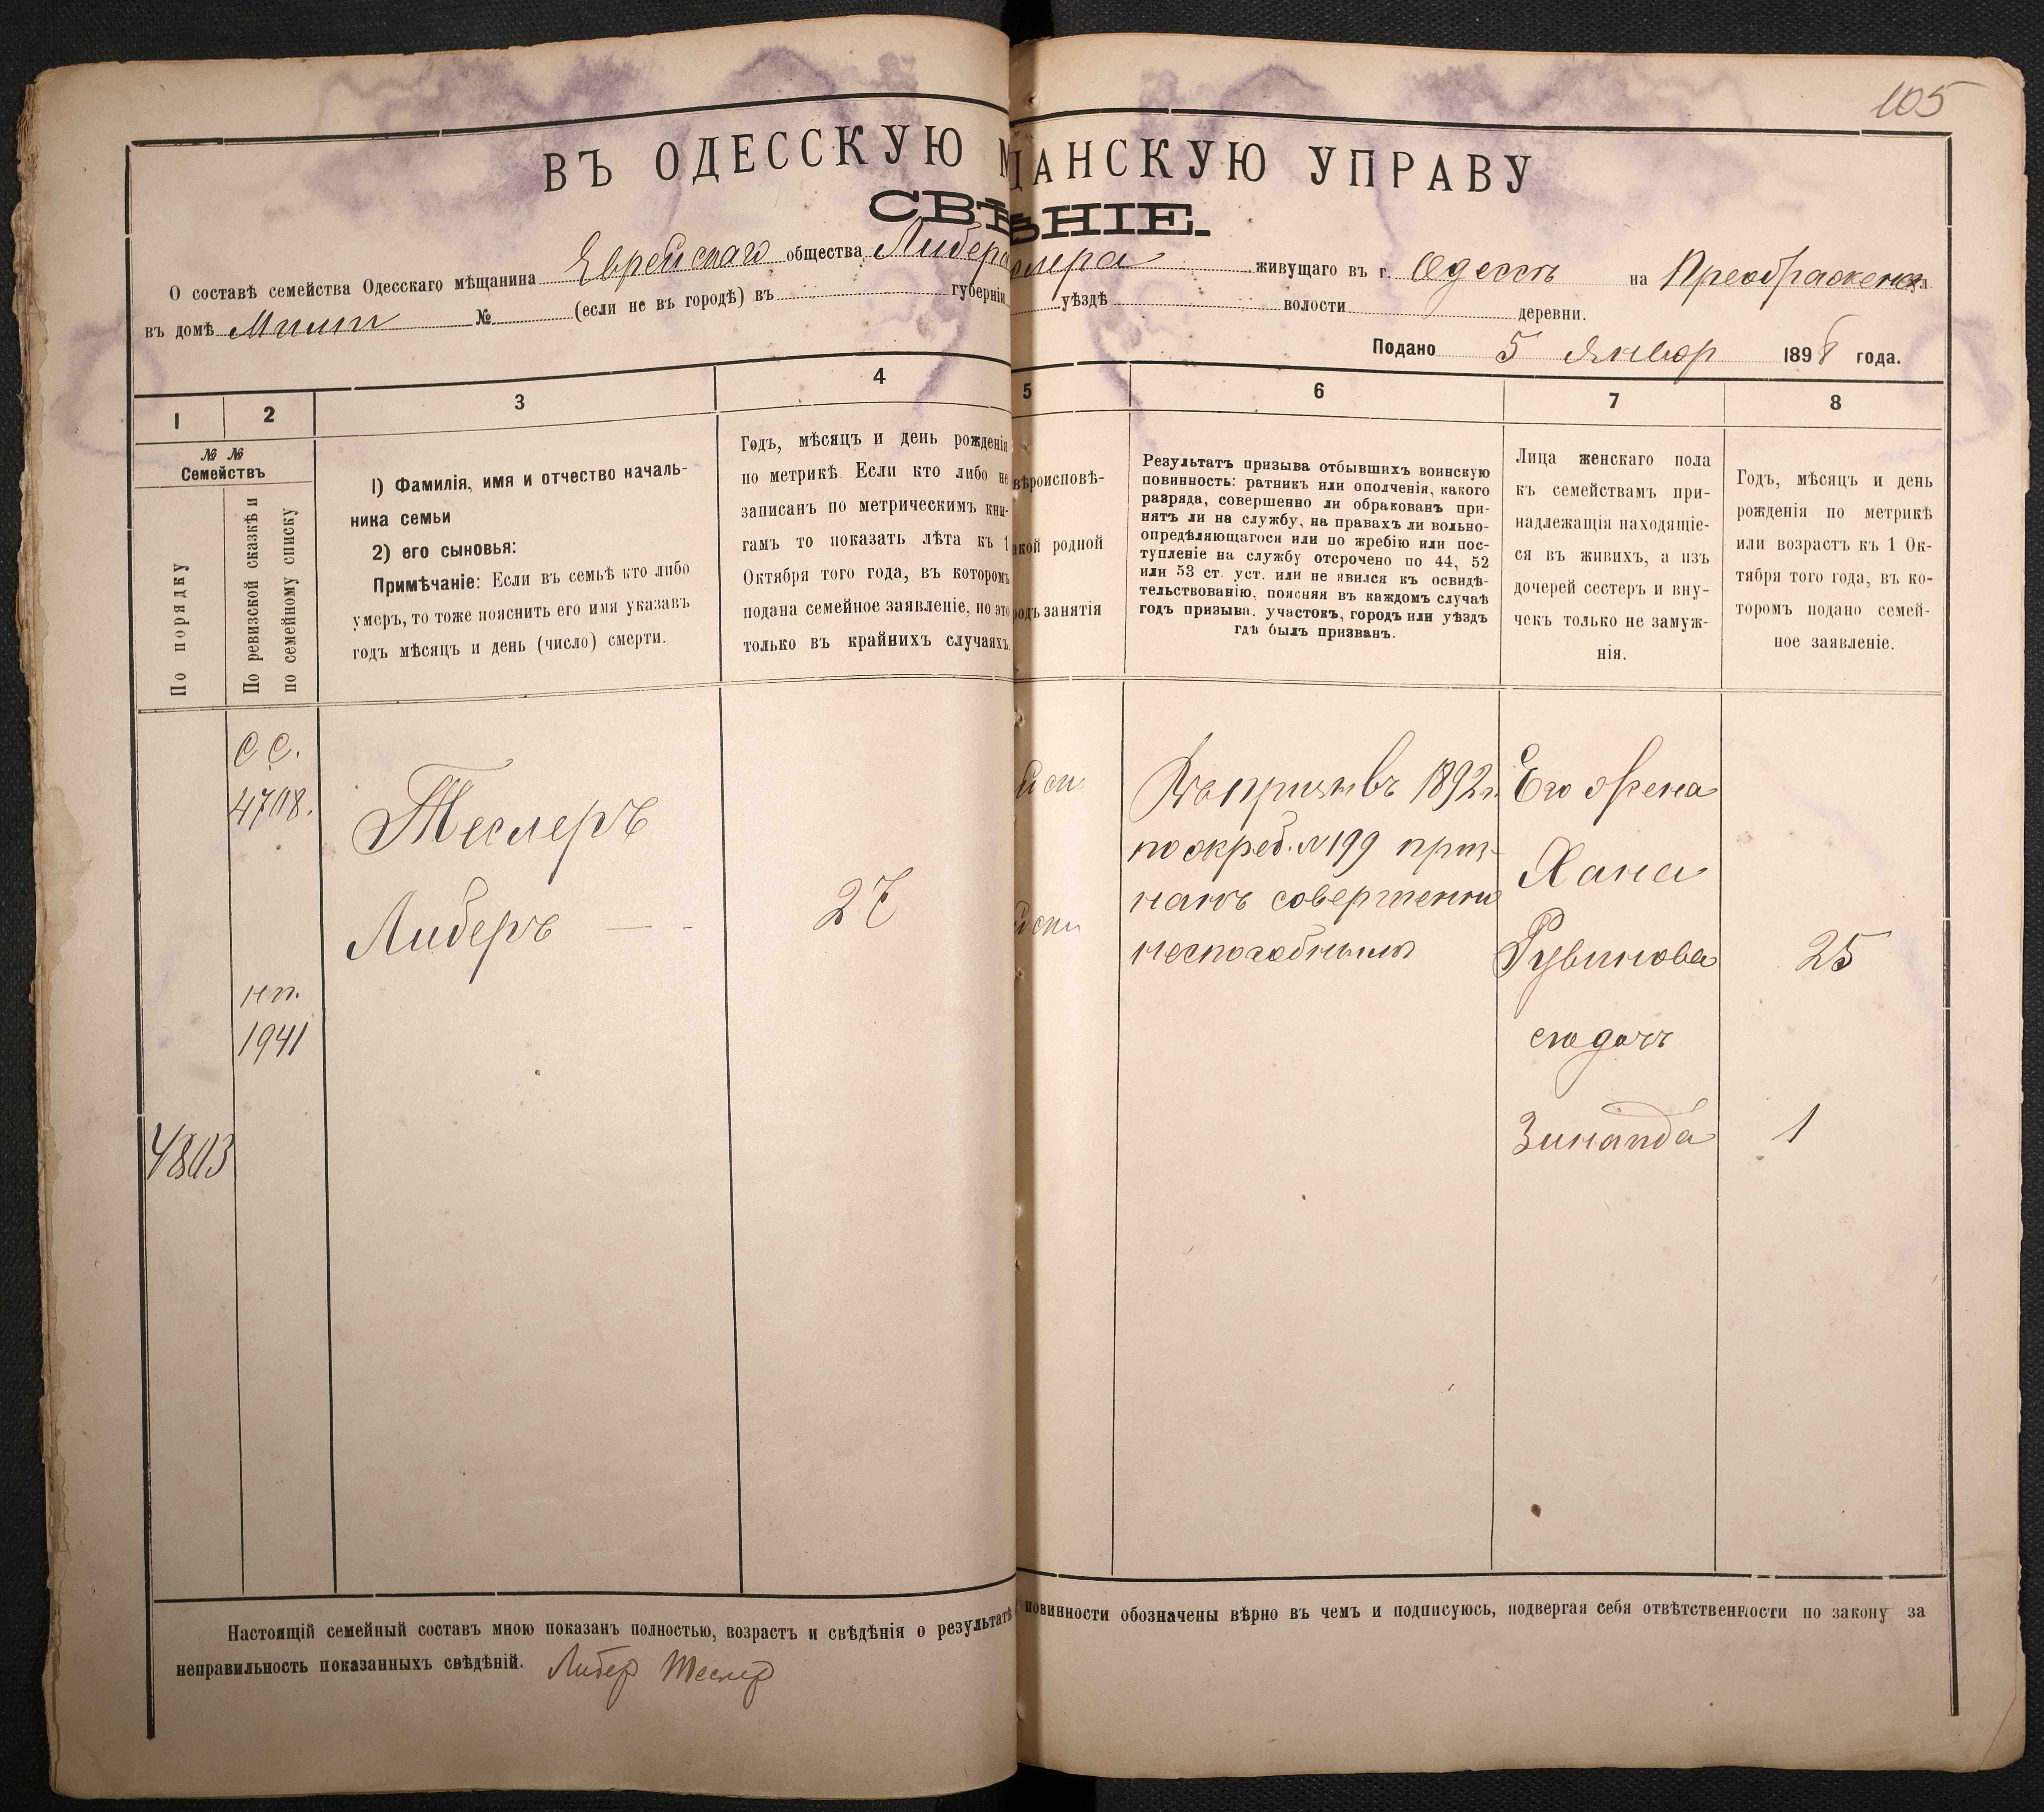 105
ВЪ ОДЕССКУЮ М ЩАНСКУЮ УПРАВУ
СВѢ ѢНІЕ.
О составѣ семейства Одесскаго мѣщанина Еврейскаго общества Либера слера живущаго въ г. Одессѣ на Преображенск ул
въ домѣ № (если не въ городѣ) въ губерніи уѣздѣ волости деревни.
Подано 5 Январ 1898 года.
1 2 3 4 5 6 7 8
№ №
Семействъ
По порядку
По ревизской сказкѣ и
по семейному списку
1) Фамилія, имя и отчество началь-
ника семьи
2) его сыновья:
Примѣчаніе: Если въ семьѣ кто либо
умеръ, то тоже пояснить его имя указавъ
годъ мѣсяцъ и день (число) смерти.
Годъ, мѣсяцъ и день рожденія
по метрикѣ. Если кто либо не
записанъ по метрическимъ кни-
гамъ то показать лѣта къ 1
Октября того года, въ которомъ
подана семейное заявленіе, но это
только въ крайнихъ случаяхъ.
вѣроисповѣ-
акой родной
родъ занятія
Результатъ призыва отбывшихъ воинскую
повинность: ратникъ или ополченія, какого
разряда, совершенно ли обракованъ при-
нятъ ли на службу, на правахъ ли вольно-
опредѣляющагося или по жребію или пос-
тупленіе на службу отсрочено по 44, 52
или 53 ст. уст. или не явился къ освидѣ-
тельствованію, поясняя въ каждомъ случаѣ
годъ призыва, участокъ, городъ или уѣздъ
гдѣ былъ призванъ.
Лица женскаго пола
къ семействамъ при-
надлежащія находящіе-
ся въ живихъ, а изъ
дочерей сестеръ и вну-
чекъ только не замуж-
нія.
Годъ, мѣсяцъ и день
рожденія по метрикѣ
или возрастъ къ 1 Ок-
тября того года, въ ко-
торомъ подано семей-
ное заявленіе.
с с.
4708.
Теслеръ
Либеръ
27
нп.
1941
4803
Въ призывъ 1892 г.
по жреб. № 199 приз-
нанъ совершенно
неспособнымъ
Его жена
Хана
Рувинова
25
его дочь
Зинаида
1
Настоящій семейный составъ мною показанъ полностью, возрастъ и свѣдѣнія о результатѣ повинности обозначены вѣрно въ чемъ и подписуюсь, подвергая себя отвѣтственности по закону за
неправильность показанныхъ свѣдѣній. Либер Теслер